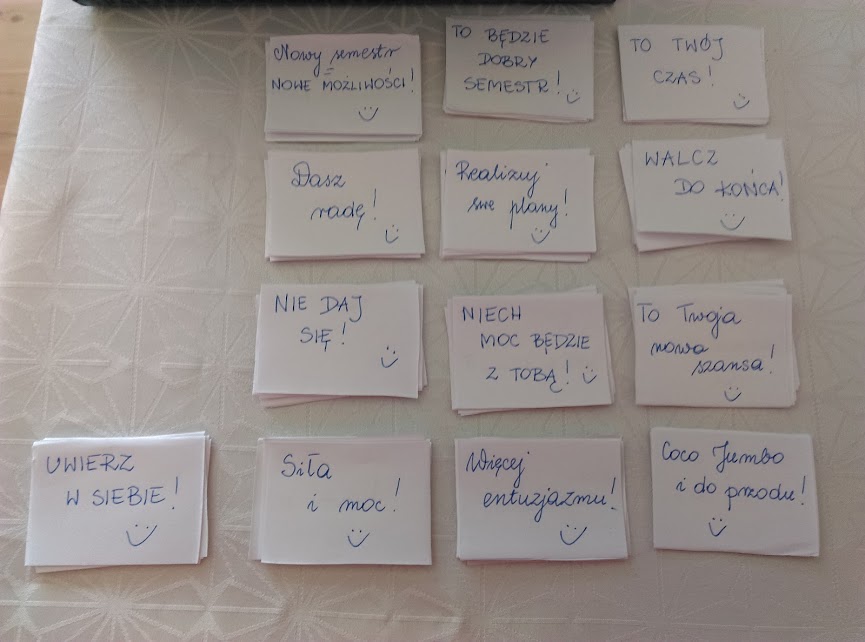 Nowy semestr
=
NOWE MOŻLIWOŚCI!
TO BĘDZIE
DOBRY
SEMESTR!
TO TWÓJ
CZAS!
Dasz
radę!
Realizuj
swe plany!
WALCZ
DO KOŃCA!
NIE DAJ
SIĘ!
NIECH
MOC BĘDZIE
Z TOBĄ!
To Twoja
nowa
szansa!
UWIERZ
W SIEBIE!
Siła
i moc!
Więcej
entuzjazmu!
Coco Jumbo
i do przodu!